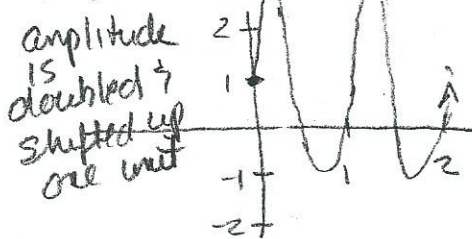 amplitude
is
doubled &
shifted up
one unit
2
1
-1
-2
1
2